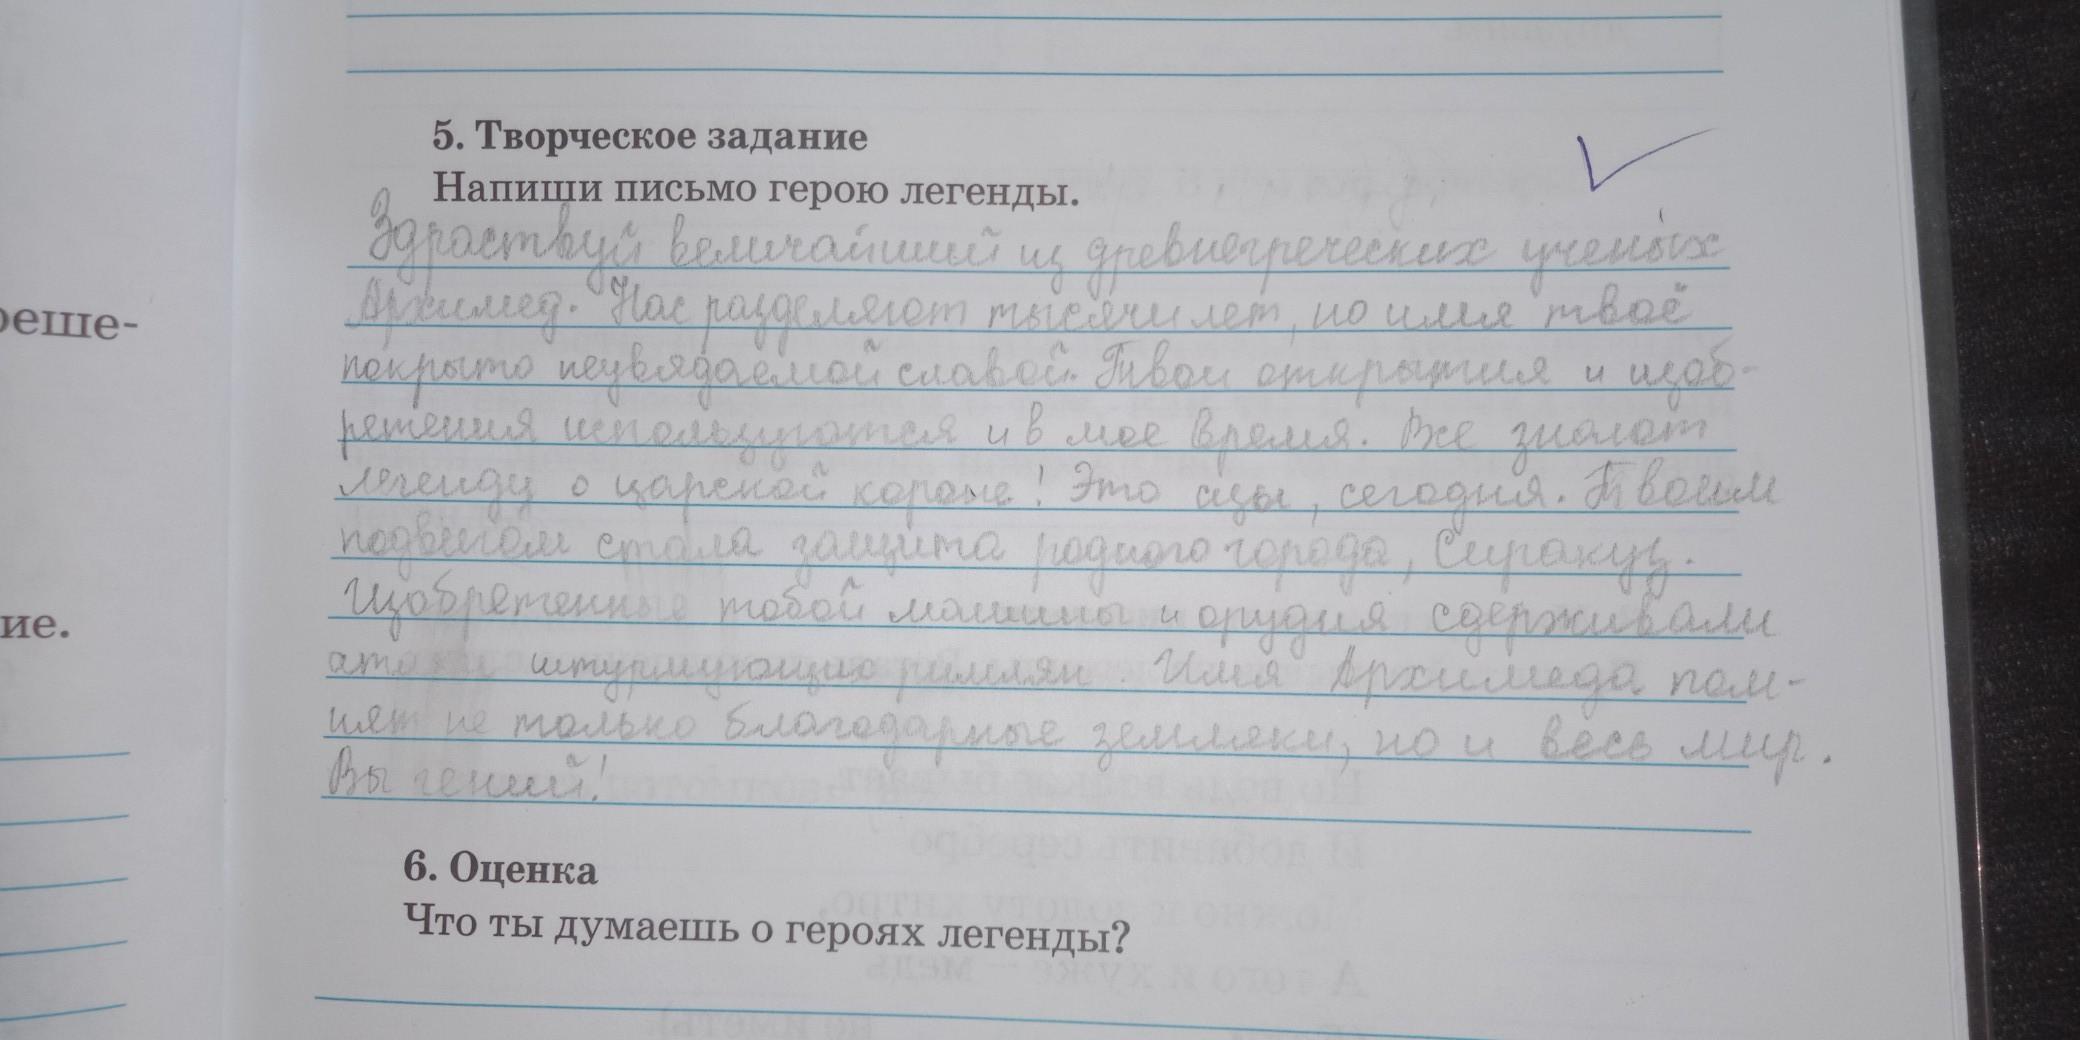 5. Творческое задание
Напиши письмо герою легенды.
Здраствуй величайший из древнегреческих ученых
Архимед. Нас разделяют тысячи лет, но имя твоё
покрыто неувядаемой славой. Твои открытия и изоб-
ретения используются и в мое время. Все знают
реше-
легенду о царской короне! Это азы, сегодня. Твоим
подвигом стала защита родного города, Сиракуз.
Изобретенные тобой машины и орудия сдерживали
ие.
атаки штурмующих римлян. Имя Архимеда пом-
нят не только благодарные земляки, но и весь мир.
Вы гений!
6. Оценка
Что ты думаешь о героях легенды?